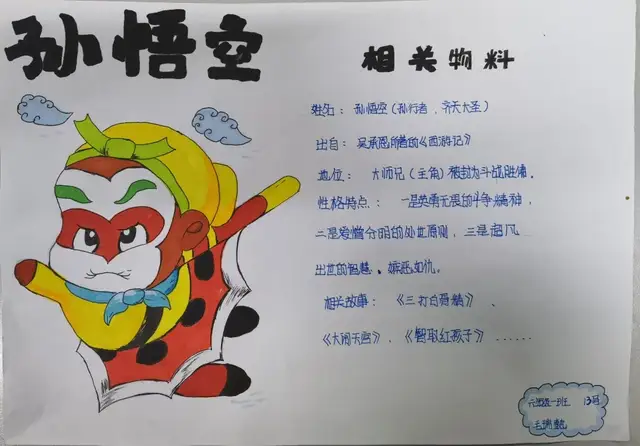 孙悟空
相关物料
姓名：孙悟空（孙行者，齐天大圣）
出自：吴承恩所著的《西游记》
地位：大师兄（主角）被封为斗战胜佛。
性格特点：一是英勇无畏的斗争精神，
二是爱憎分明的处世原则，三是超凡
出世的智慧、嫉恶如仇。
相关故事：《三打白骨精》、
《大闹天宫》、《智取红孩子》……
六年级一班 13号